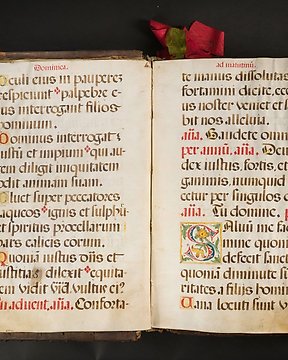 Dominica.
Oculi eius in pauperez
respiciunt palpebre e-
ius interrogant filios
hominum.
Dominus interrogat i
ustũ et impium qui au-
tem diligit iniquitatem
odit animam suam.
Pluet super peccatores
laqueos ignis et sulphu
et spiritus procellarum
pars calicis eorum.
Quoniã iustus dñs et
iustitias dilexit equita-
tem vidit vult⁹ ei?
In aduent. aña. Conforta-
ad matutinũ.
te manus dissolutas
fortamini dicite, ecce
us noster veniet et s
bit nos alleluia.
aña. Gaudete omn
per annũ. aña.
dex iustus, fortis, et
gaminis, nunquid
cetur per singulos d
aña. Tu domine. p
Saluũ me fac
mine quoni
defecit sanct
quoniã diminute s
ritates a filijs homin
Uana locuti sunt v